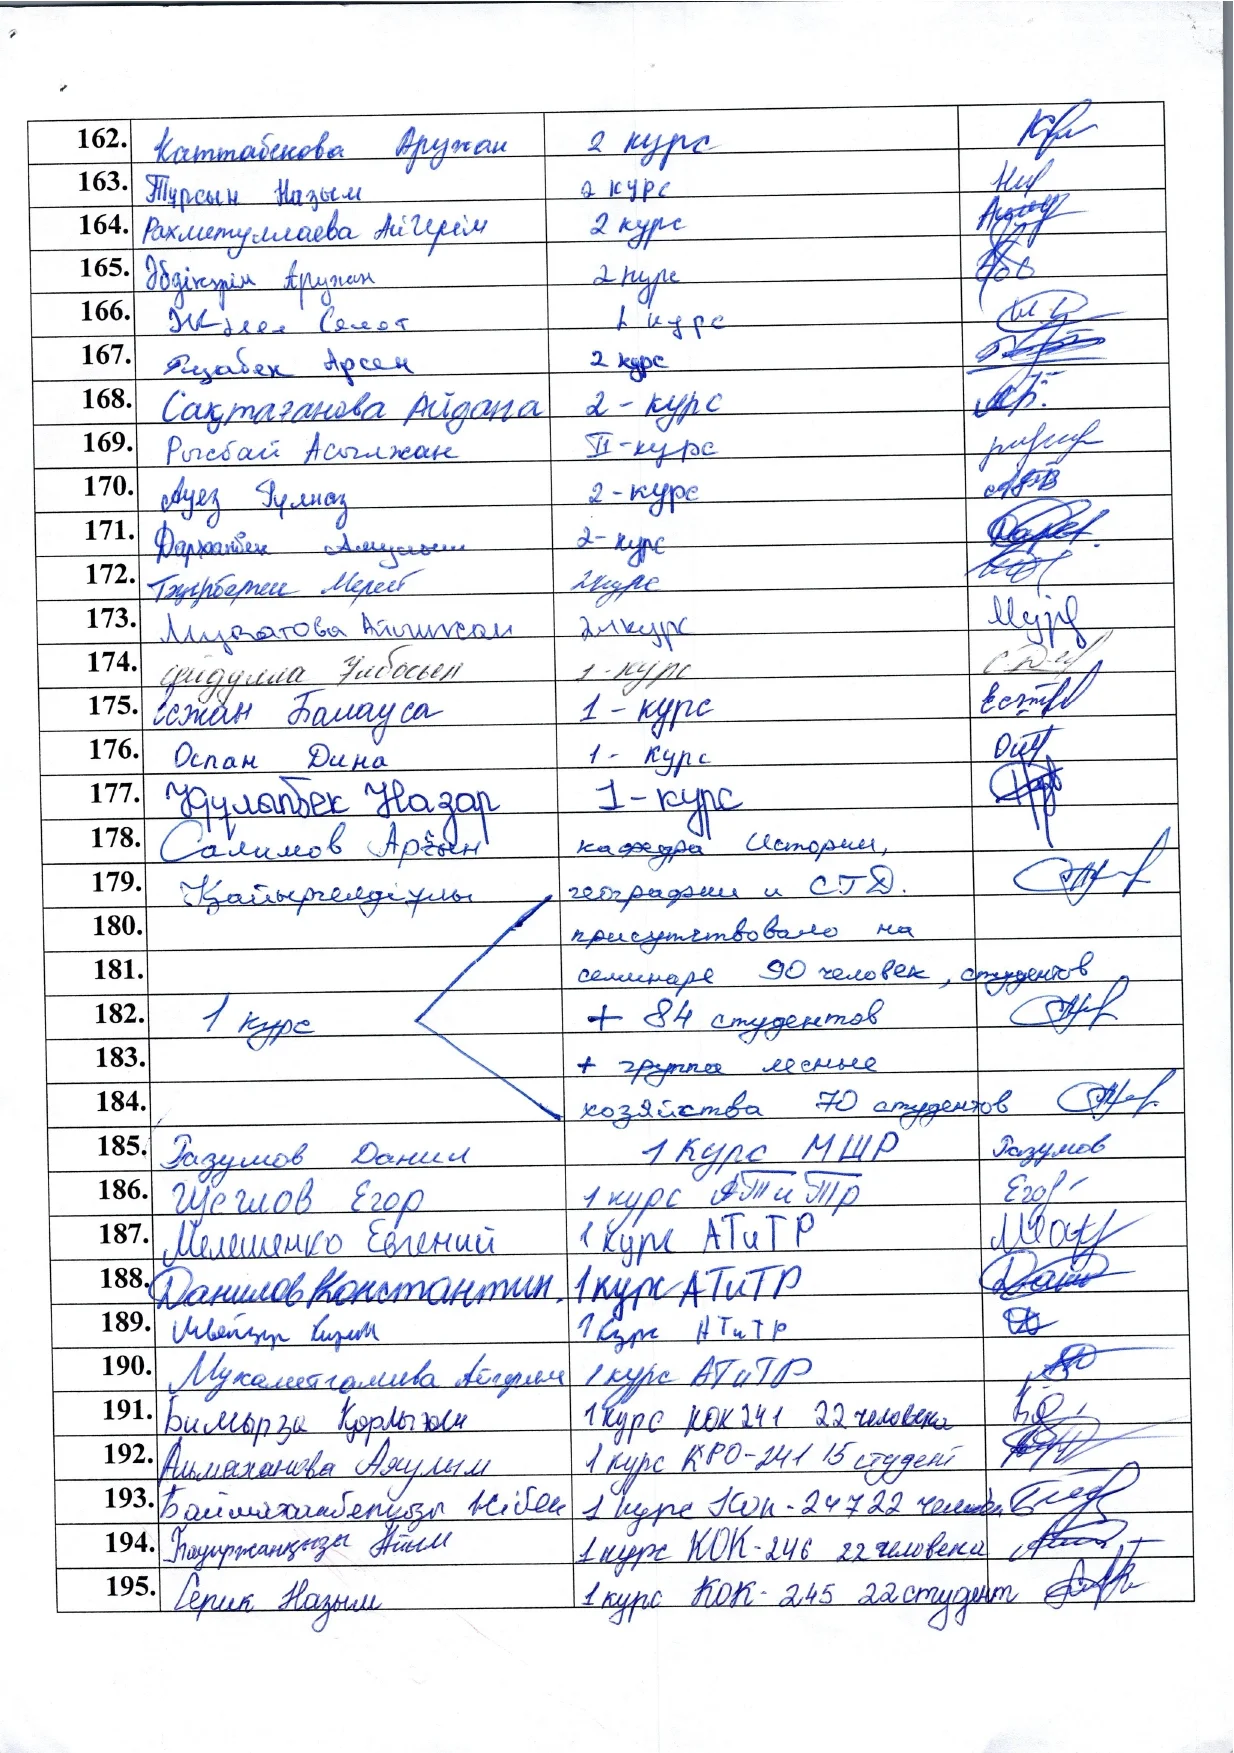 162. Каттабекова Аружан 2 курс
163. Тұрсын Назым 2 курс
164. Рахметуллаева Айгерім 2 курс
165. Әбдікәрім Аружан 2 курс
166. 1 курс
167. Арсен 2 курс
168. Сақтағанова Айдана 2 - курс
169. Рысбай Асылжан II - курс
170. Ауез Гулназ 2 - курс
171. 2 - курс
172. Тәңірберген Мерей 2 курс
173. 2 - курс
174. Сейдулла Ұлбосын 1 - курс
175. Есжан Балауса 1 - курс Есж
176. Оспан Дина 1 - курс
177. Назар 1 - курс
178. Салимов Арғын кафедра Истории,
179. Қайыргелдіұлы географии и СГД.
180. присутствовало на
181. семинаре 90 человек, студентов
182. 1 курс + 84 студентов
183. + группа лесные
184. хозяйства 70 студентов
185. Разумов Данил 1 курс МШР Разумов
186. Щеглов Егор 1 курс АТиТР Егор
187. Мелешенко Евгений 1 курс АТиТР
188. Данилов Константин. 1 курс АТиТР
189. 1 курс АТиТР
190. Мухаметгалиева 1 курс АТиТР
191. Бимырза 1 курс КОК 241 22 человека
192. Альмаханова Аяулым 1 курс КРО-241 15 студент
193. 1 курс КОК - 247 22
194. Бауыржанқызы Айым 1 курс КОК - 246 22 человека
195. Серик Назым 1 курс КОК - 245 22 студент